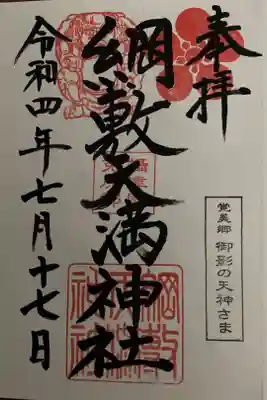 奉拝
覚美郷 御影の天神さま
綱敷天満神社
令和四年七月十七日
綱敷天満神社